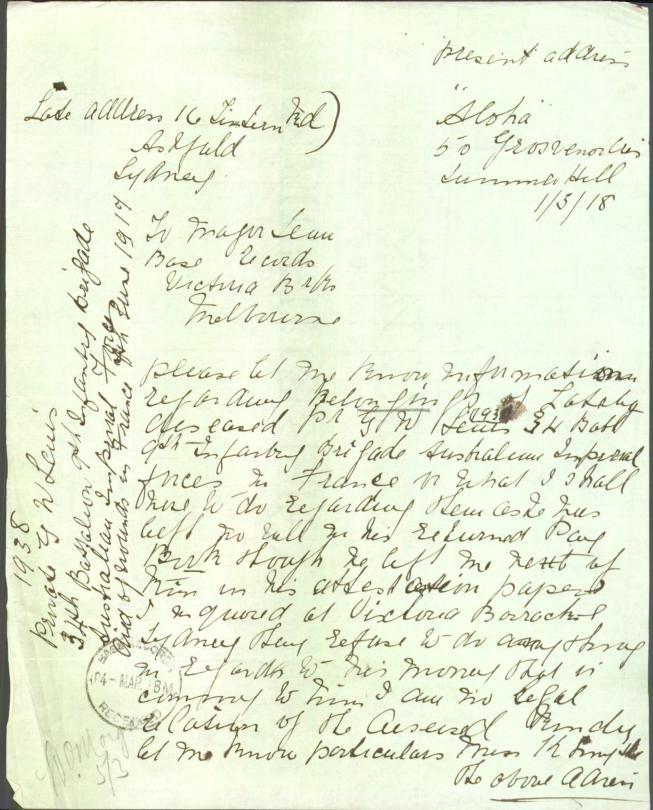 Present address
"Aloha"
50 Grosvenor
Summer Hill
1/3/18
Late address 16 Tintern Rd)
Ashfield
Sydney
To Major Lean
Base Records
Victoria Brks
Melbourne
please let me know information
regarding belongings of Lately
deceased Pr G W Lewis 1938 34 Batt
9th Infantry Brigade Australian Imperial
forces in France or what I shall
have to do regarding them as he has
left no will in his returned Pay
Book though he left me next of
Kin in his attestation papers
I inquired at Victoria Barracks
Sydney they refuse to do anything
in regards to his money that is
coming to him I am no legal
relation of the deceased Kindly
let me know particulars Miss King
the above address
1938
Private G W Lewis
34th Battalion 9th Infantry Brigade
Australian Imperial Force
Died of wounds in France June 1917
BASE RECORDS
04-MAR.18
RECEIVED